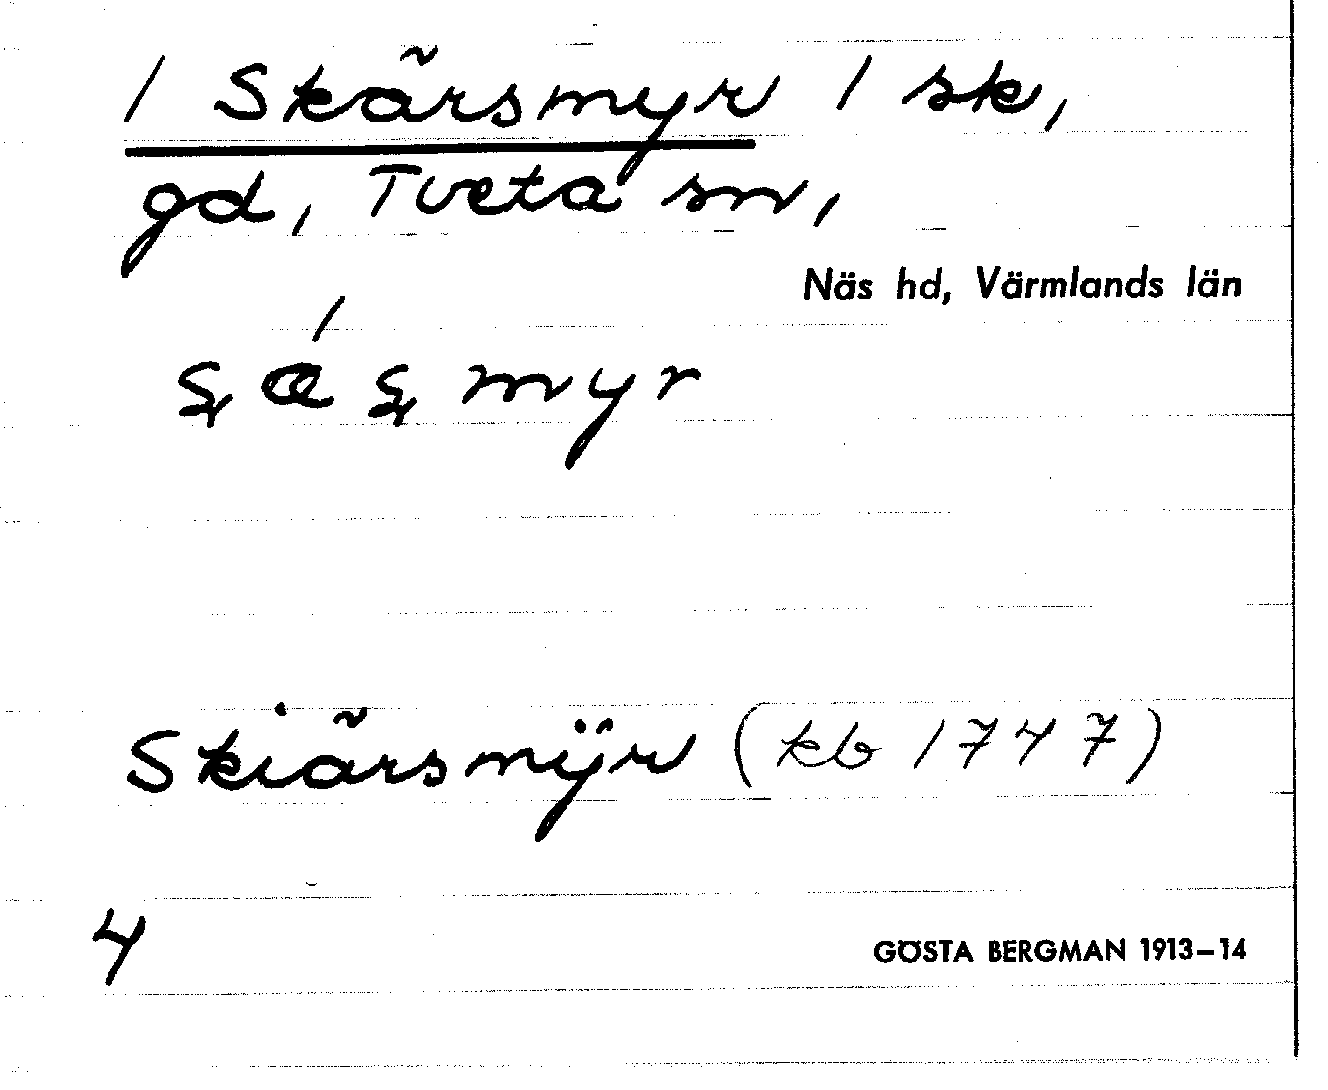 / Skärsmyr / sk,
gd, Tveta sn,
Näs hd, Värmlands län
Skiärsmÿr (kb 1747)
4
GÖSTA BERGMAN 1913–14